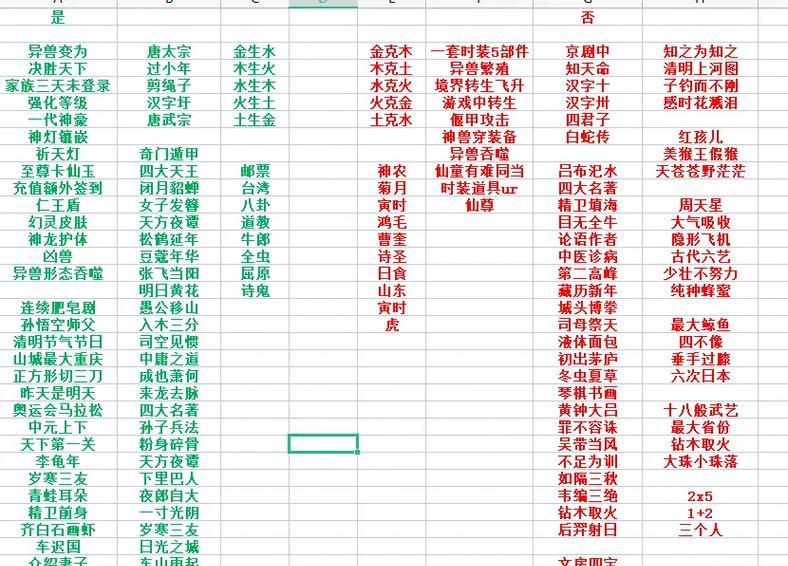 是 否
异兽变为 唐太宗 金生水 金克木 一套时装5部件 京剧中 知之为知之
决胜天下 过小年 木生火 木克土 异兽繁殖 知天命 清明上河图
家族三天未登录 剪绳子 水生木 水克火 境界转生飞升 汉字十 子钓而不刚
强化等级 汉字圩 火生土 火克金 游戏中转生 汉字卅 感时花溅泪
一代神豪 唐武宗 土生金 土克水 偃甲攻击 四君子
神灯镶嵌 神兽穿装备 白蛇传 红孩儿
祈天灯 奇门遁甲 异兽吞噬 美猴王假猴
至尊卡仙玉 四大天王 邮票 神农 仙童有难同当 吕布汜水 天苍苍野茫茫
充值额外签到 闭月貂蝉 台湾 菊月 时装道具ur 四大名著
仁王盾 女子发簪 八卦 寅时 仙尊 精卫填海 周天星
幻灵皮肤 天方夜谭 道教 鸿毛 目无全牛 大气吸收
神龙护体 松鹤延年 牛郎 曹奎 论语作者 隐形飞机
凶兽 豆蔻年华 全虫 诗圣 中医诊病 古代六艺
异兽形态吞噬 张飞当阳 屈原 日食 第二高峰 少壮不努力
明日黄花 诗鬼 山东 藏历新年 纯种蜂蜜
连续肥皂剧 愚公移山 寅时 城头博拳
孙悟空师父 入木三分 虎 司母祭天 最大鲸鱼
清明节气节日 司空见惯 液体面包 四不像
山城最大重庆 中庸之道 初出茅庐 垂手过膝
正方形切三刀 成也萧何 冬虫夏草 六次日本
昨天是明天 来龙去脉 琴棋书画
奥运会马拉松 四大名著 黄钟大吕 十八般武艺
中元上下 孙子兵法 罪不容诛 最大省份
天下第一关 粉身碎骨 吴带当风 钻木取火
李龟年 天方夜谭 不足为训 大珠小珠落
岁寒三友 下里巴人 如隔三秋
青蛙耳朵 夜郎自大 韦编三绝 2x5
精卫前身 一寸光阴 钻木取火 1+2
齐白石画虾 岁寒三友 后羿射日 三个人
车迟国 日光之城
介绍妻子 东山再起 文房四宝